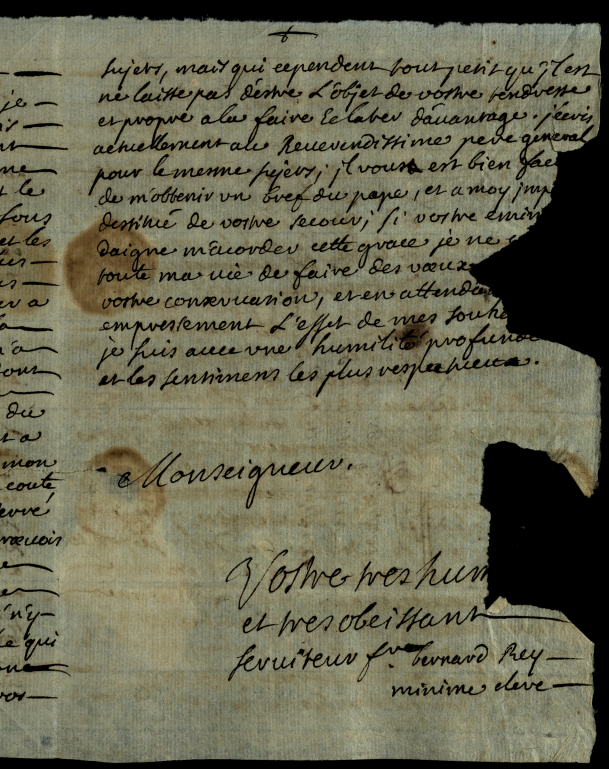 sujets, mais qui cependent tout petit qu'jl est
ne laisse pas déstre L'objet de vostre tendresse
et propre a la faire Eclater dáuantage. j'ecris
actuellement au Reuerendissime pere general
pour le mesme sujets; jl vous est bien facc
de m'obtenir vn bref du pape, et a moy jmp
destitué de vostre secour; si vostre emin
daigne m'acorder cette grace je ne
toute ma vie de faire des vœux
vostre conseruation, et en attendan
empressement L'effet de mes souha
je suis auec vne humilité profund
et les sentimens les plus respectueux.
Monseigneur.
Vostre tres hum
et tres obeissant
seruiteur fre. bernard Rey
minime eleve
je
nt
ne
t le
sous
et les
er a
du
nt a
mon
coute
ervé
n'y
e qui
vos